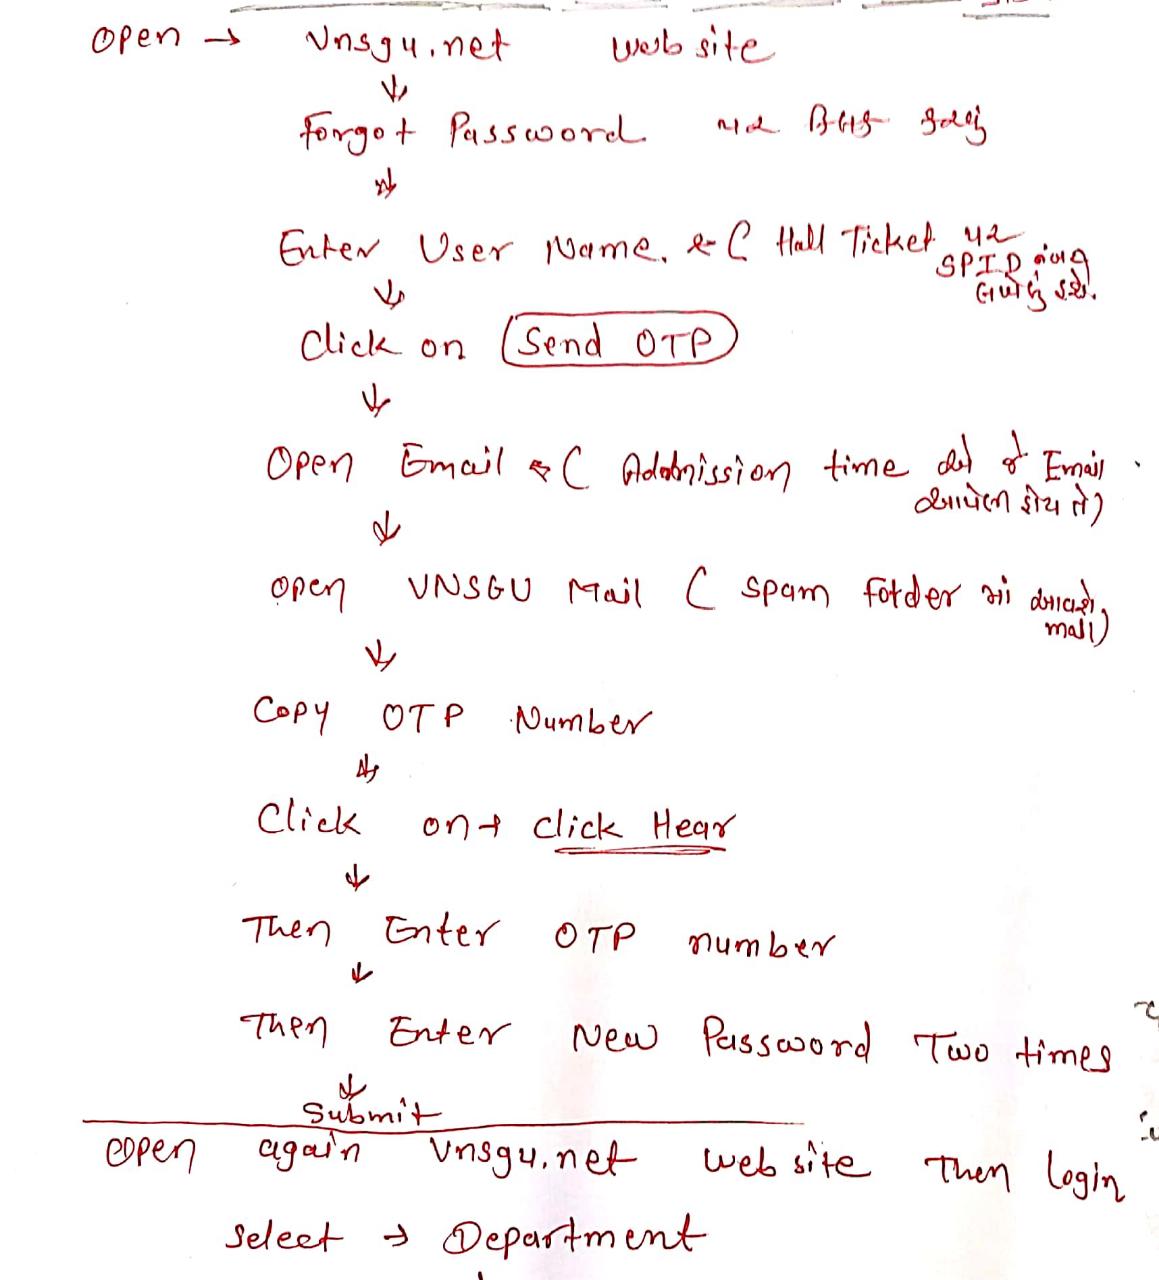 Open → Vnsgu.net web site
↓
Forgot Password પર ક્લિક કરવું
↓
Enter User Name. ← ( Hall Ticket પર
SPID નંબર
લખેલું હશે.
↓
Click on Send OTP
↓
Open Email ← ( Addmission time જે Email
આપેલ હોય તે)
↓
open VNSGU Mail ( spam folder માં આવશે,
mail)
↓
Copy OTP Number
↓
Click on → click Hear
↓
Then Enter OTP number
↓
Then Enter New Password Two times
↓
Submit
open again Vnsgu.net web site Then login
select → Department